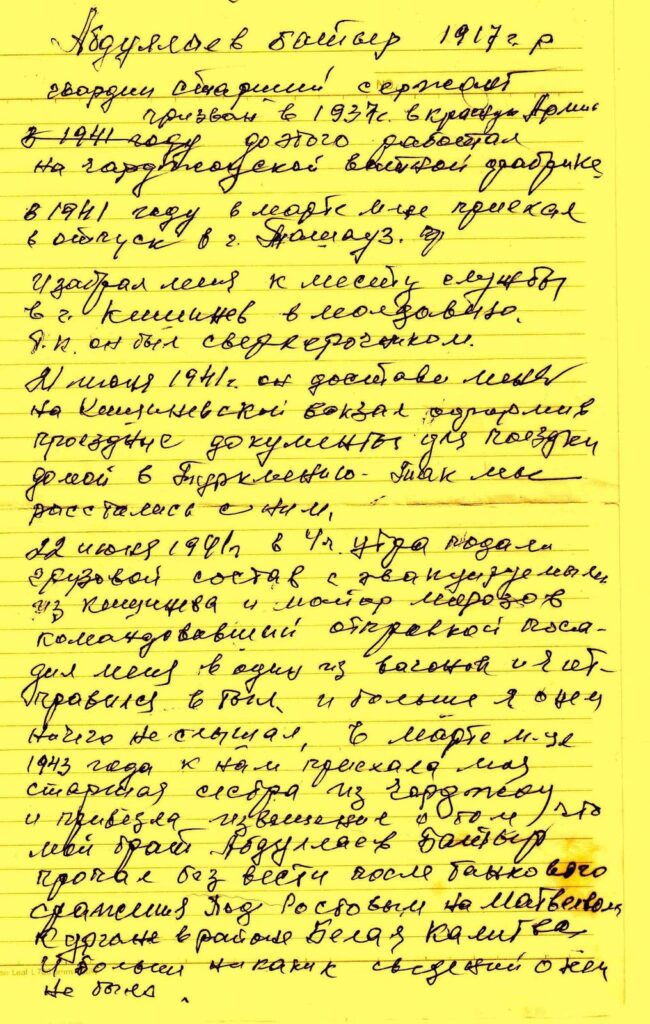 Абдуллаев Батыр 1917 г. р
гвардии старший сержант
призван в 1937г. в красную Армию
в 1941 году до этого работал
на чарджоуской ватной фабрике
в 1941 году в марте м-це приехал
в отпуск в г. Ташауз.
и забрал меня к месту службы
в г. Кишинев в молдавию.
Т.к. он был сверхсрочником.
21 июня 1941г. он доставил меня
на Кишиневский вокзал оформив
проездные документы для поездки
домой в Туркмению - Так мы
расстались с ним.
22 июня 1941г в 4ч. утра подали
грузовой состав с эвакуируемыми
из Кишинева и майор морозов
командовавший отправкой поса-
дил меня в один из вагонов и я от-
правился в тыл и больше я о нем
ничего не слышал, в марте м-це
1943 года к нам приехала моя
старшая сестра из Чарджоу
и привезла извещение о том, что
мой брат Абдуллаев Батыр
пропал без вести после танкового
сражения под Ростовым на Матвеевом
Кургане в районе Белая Калитва,
И больше никаких сведений о нем
не было.